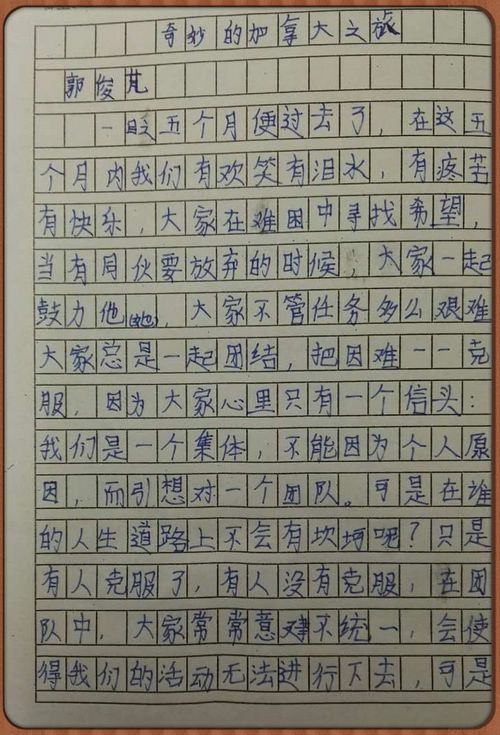 奇妙的加拿大之旅
郭俊芃
一晗五个月便过去了，在这五
个月内我们有欢笑有泪水，有疼苦
有快乐，大家在难困中寻找希望，
当有同伙要放弃的时候，大家一起
鼓力他(她)，大家不管任务多么艰难
大家总是一起团结，把困难一一克
服，因为大家心里只有一个信头：
我们是一个集体，不能因为个人原
因，而引想对一个团队。可是在谁
的人生道路上不会有坎坷呢？只是
有人克服了，有人没有克服，在团
队中，大家常常意难不统一，会使
得我们的活动无法进行下去，可是